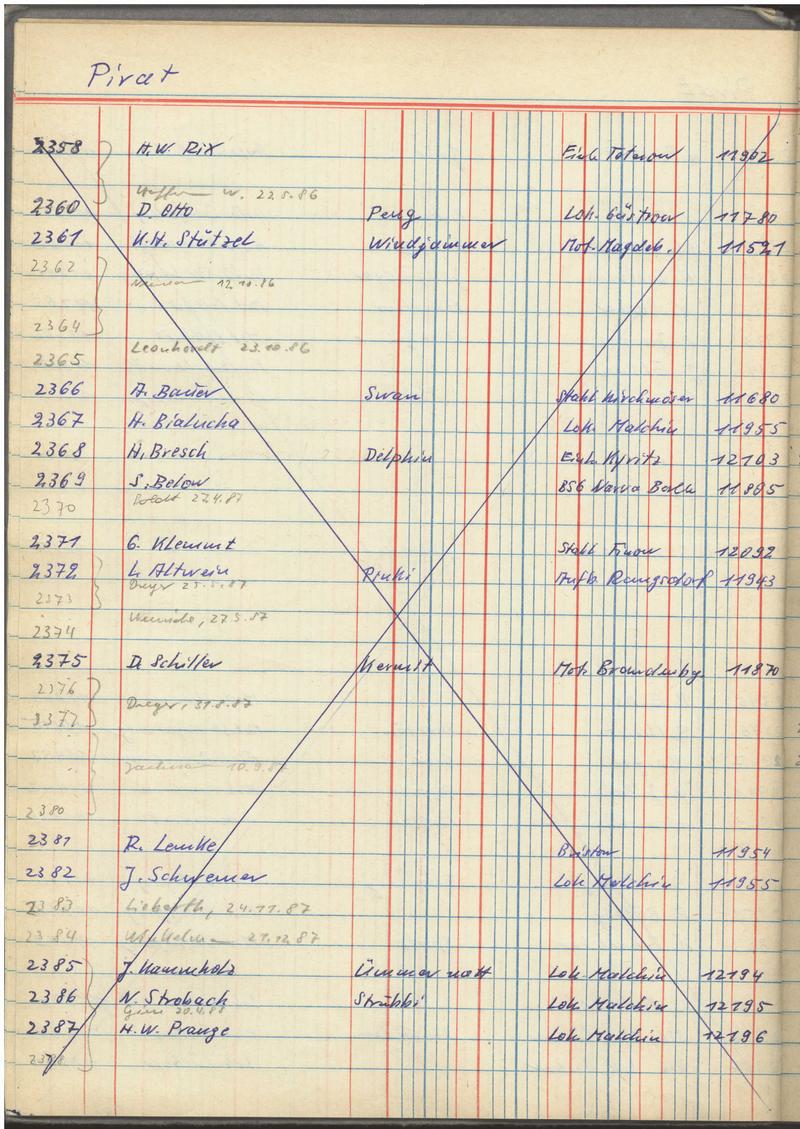 Pirat
2358 H.W. Rix Einh. Teterow 11902
W. 22.5.86
2360 D. Otto Peng Lok. Güstrow 11780
2361 K.H. Stützel Windjammer Mot. Magdeb. 11521
2362
12.10.86
2364
Leonhardt 23.10.86
2365
2366 A. Bauer Swan Stahl Kirchmöser 11680
2367 H. Bialucha Lok. Malchin 11955
2368 H. Bresch Delphin Einh. Kyritz 12103
2369 S. Below BSG Narva Berlin 11895
2370 27.4.87
2371 G. Klemmt Stahl Finow 12092
2372 L. Altwein Aufb. Rangsdorf 11943
2373
27.5.87
2374
2375 D. Schiller Kermit Mot. Brandenbg. 11870
2376
Dreger, 31.8.87
2377
2380
2381 R. Lemke 11954
2382 J. Schwemer Lok Malchin 11955
2383 24.11.87
2384 21.12.87
2385 Ümmer natt Lok Malchin 12194
2386 N. Strobach Strubbi Lok Malchin 12195
20.4.88
2387 H.W. Prange Lok Malchin 12196